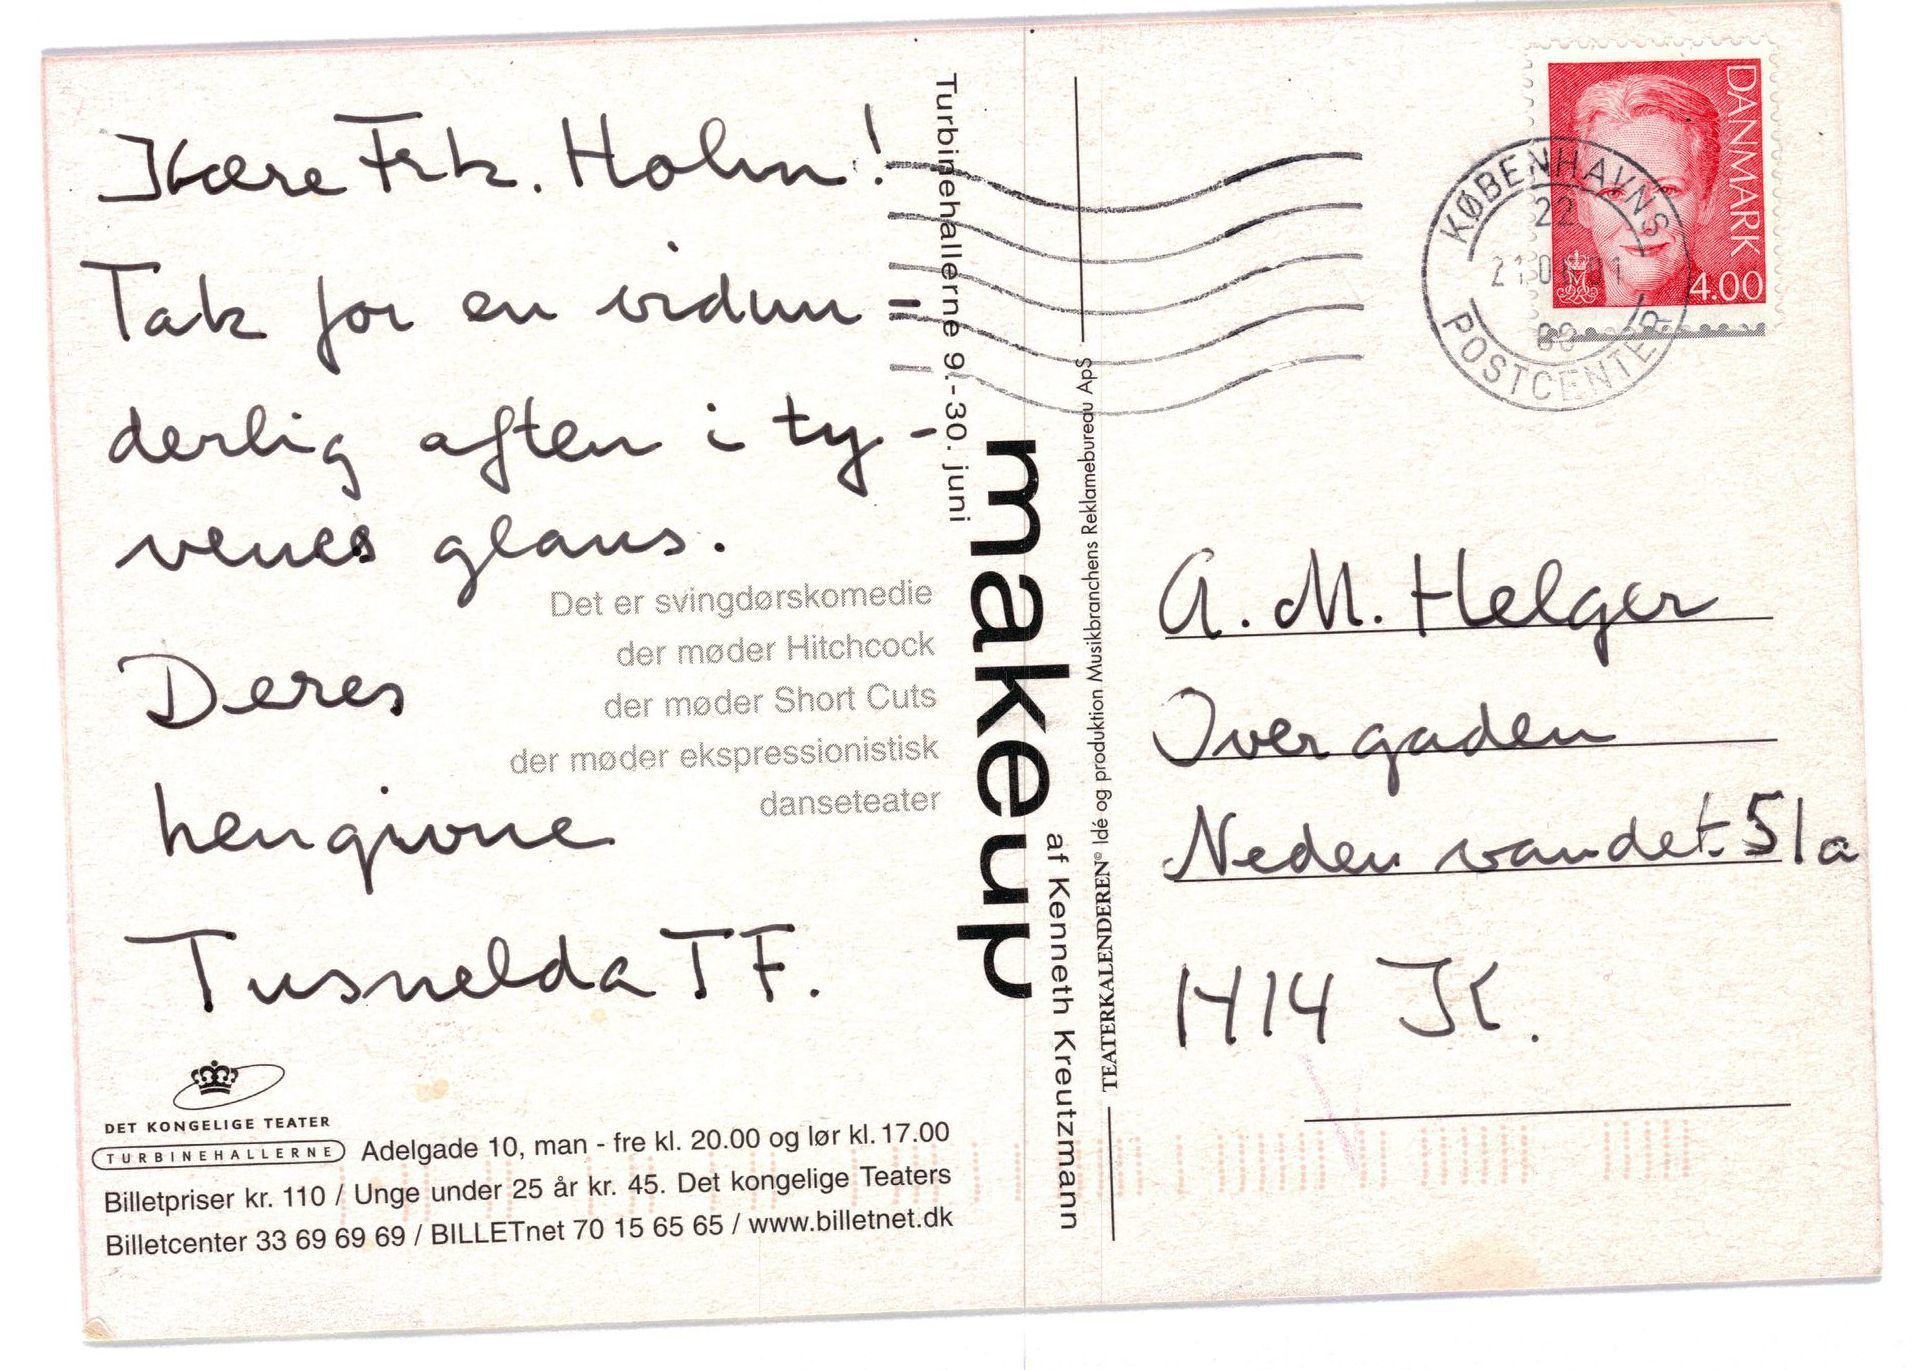 Kære Frk. Holm!
Tak for en vidun=
derlig aften i ty-
venes glans.
Deres
hengivne
Tusnelda TF.
Det er svingdørskomedie
der møder Hitchcock
der møder Short Cuts
der møder ekspressionistisk
danseteater
DET KONGELIGE TEATER
TURBINEHALLERNE Adelgade 10, man - fre kl. 20.00 og lør kl. 17.00
Billetpriser kr. 110 / Unge under 25 år kr. 45. Det kongelige Teaters
Billetcenter 33 69 69 69 / BILLETnet 70 15 65 65 / www.billetnet.dk
Turbinehallerne 9.-30. juni
makeup
af Kenneth Kreutzmann
TEATERKALENDEREN® Idé og produktion Musikbranchens Reklamebureau ApS
DANMARK
4.00
KØBENHAVNS
22
POSTCENTER
A. M. Helger
Over gaden
Neden vandet. 51a
1414 K.